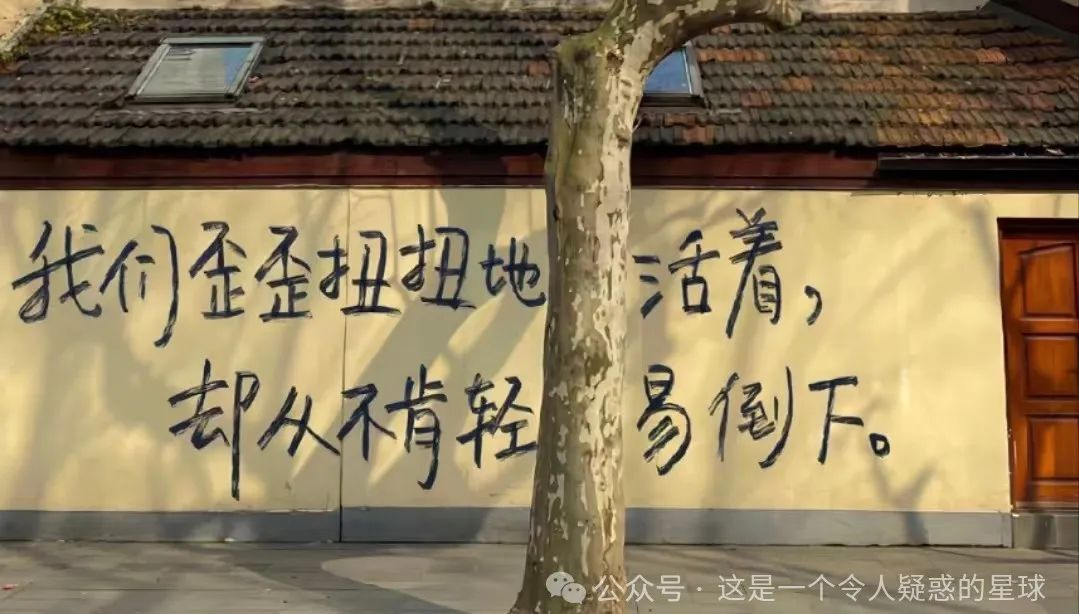 我们歪歪扭扭地活着，
却从不肯轻易倒下。
公众号 · 这是一个令人疑惑的星球